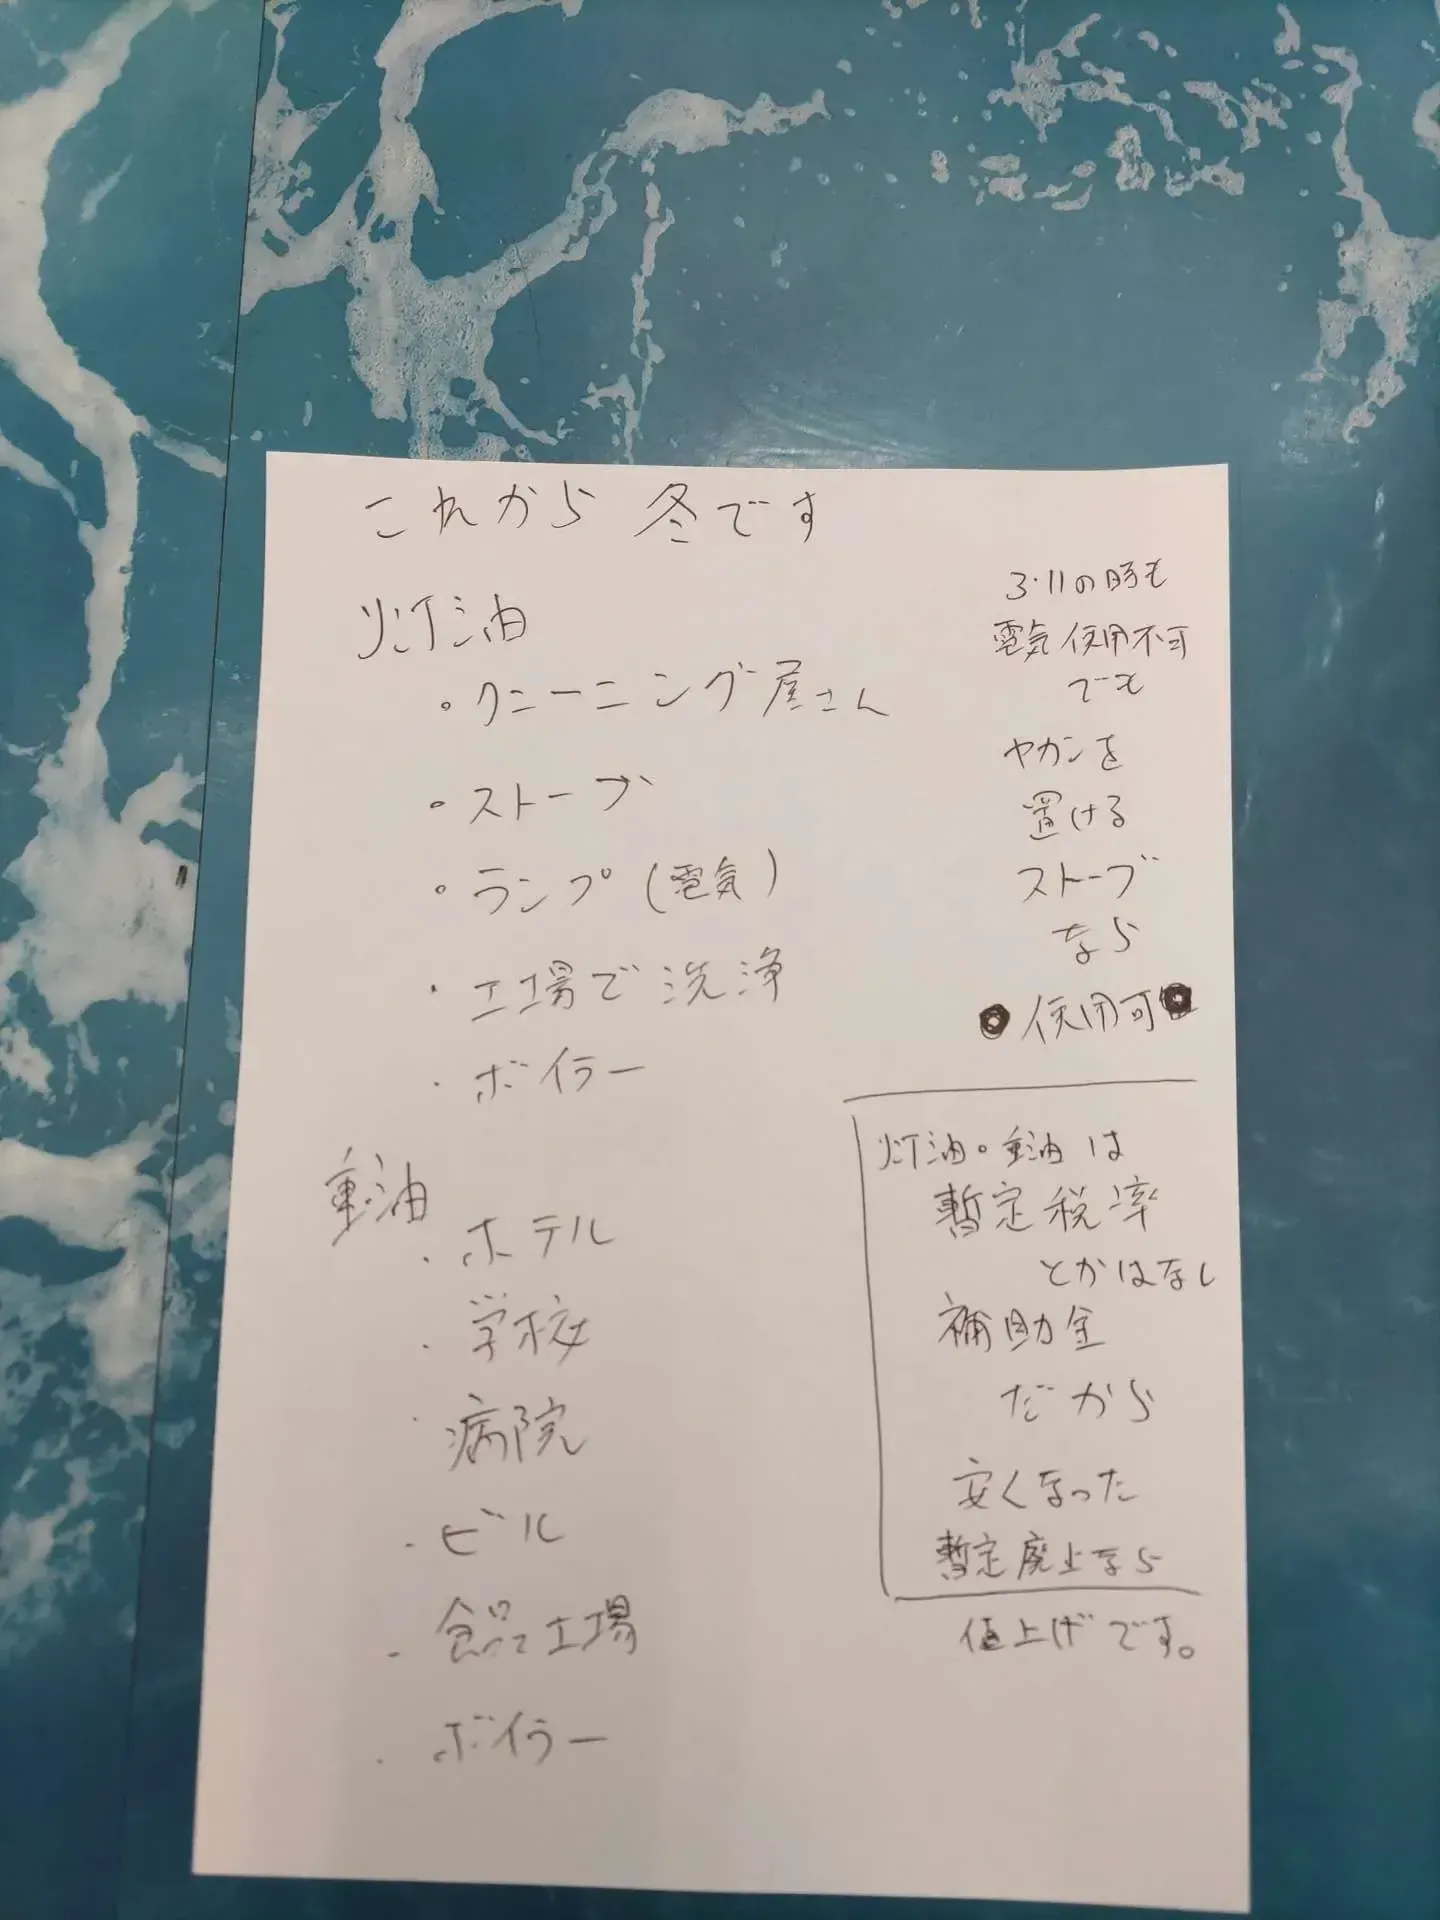 これから 冬です
灯油
・クニーニング屋さん
・ストーブ
・ランプ(電気)
・工場で洗浄
・ボイラー
重油
・ホテル
・学校
・病院
・ビル
・食品工場
・ボイラー
3.11の時も
電気使用不可
でも
ヤカンを
置ける
ストーブ
なら
使用可
灯油。重油は
暫定税率
とかはなし
補助金
だから
安くなった
暫定廃止なら
値上げです。